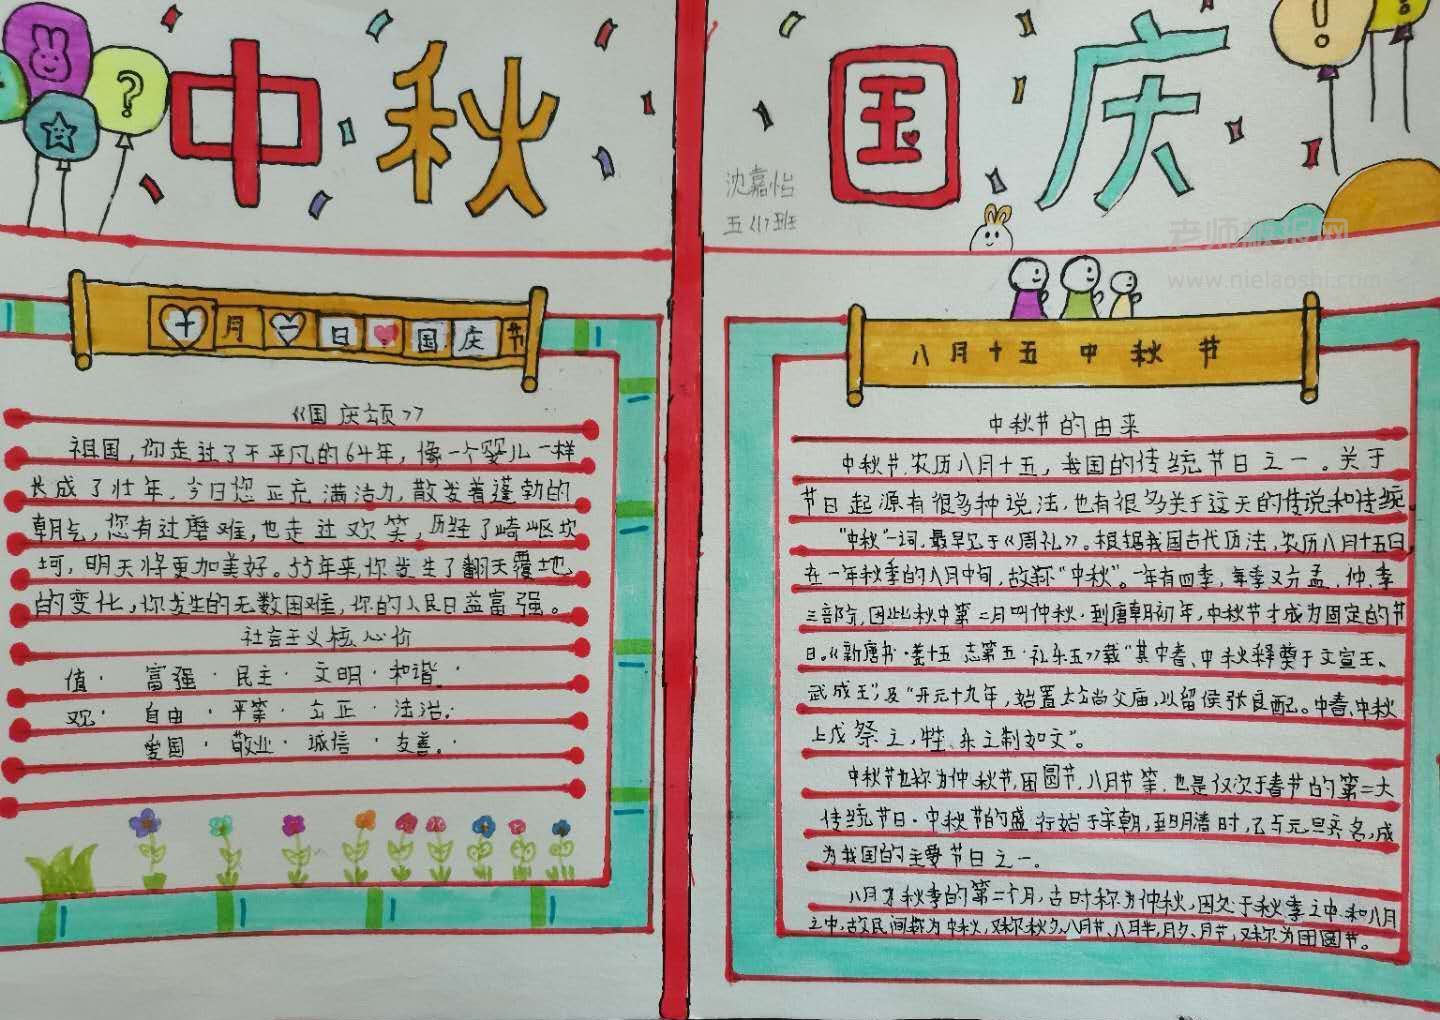 中秋
国庆
沈嘉怡
五(1)班
老师板报网
www.nielaoshi.com
十月一日国庆节
《国庆颂》
祖国,你走过了不平凡的64年,像一个婴儿一样
长成了壮年,今日您正充满活力,散发着蓬勃的
朝气,您有过磨难,也走过欢笑,历经了崎岖坎
坷,明天将更加美好。55年来,你发生了翻天覆地
的变化,你发生的无数困难,你的人民日益富强。
社会主义核心价
值· 富强·民主·文明·和谐·
观· 自由·平等·公正·法治·
爱国·敬业·诚信·友善·
八月十五 中秋节
中秋节的由来
中秋节,农历八月十五,我国的传统节日之一。关于
节日起源有很多种说法,也有很多关于这天的传说和传统。
"中秋"一词,最早见于《周礼》。根据我国古代历法,农历八月十五日,
在一年秋季的八月中旬,故称"中秋"。一年有四季,每季又分孟、仲、季
三部分,因此秋中第二月叫仲秋,到唐朝初年,中秋节才成为固定的节
日。《新唐书·卷十五 志第五·礼乐五》载"其中春、中秋释奠于文宣王、
武成王",及"开元十九年,始置太公尚父庙,以留侯张良配。中春、中秋
上戊祭之,牲、乐之制如文"。
中秋节也称为仲秋节,团圆节,八月节等,也是仅次于春节的第二大
传统节日。中秋节的盛行始于宋朝,至明清时,已与元旦齐名,成
为我国的主要节日之一。
八月才秋季的第二个月,古时称为仲秋,因处于秋季之中和八月
之中,故民间称为中秋,又称秋夕、八月节、八月半,月夕、月节,又称为团圆节。